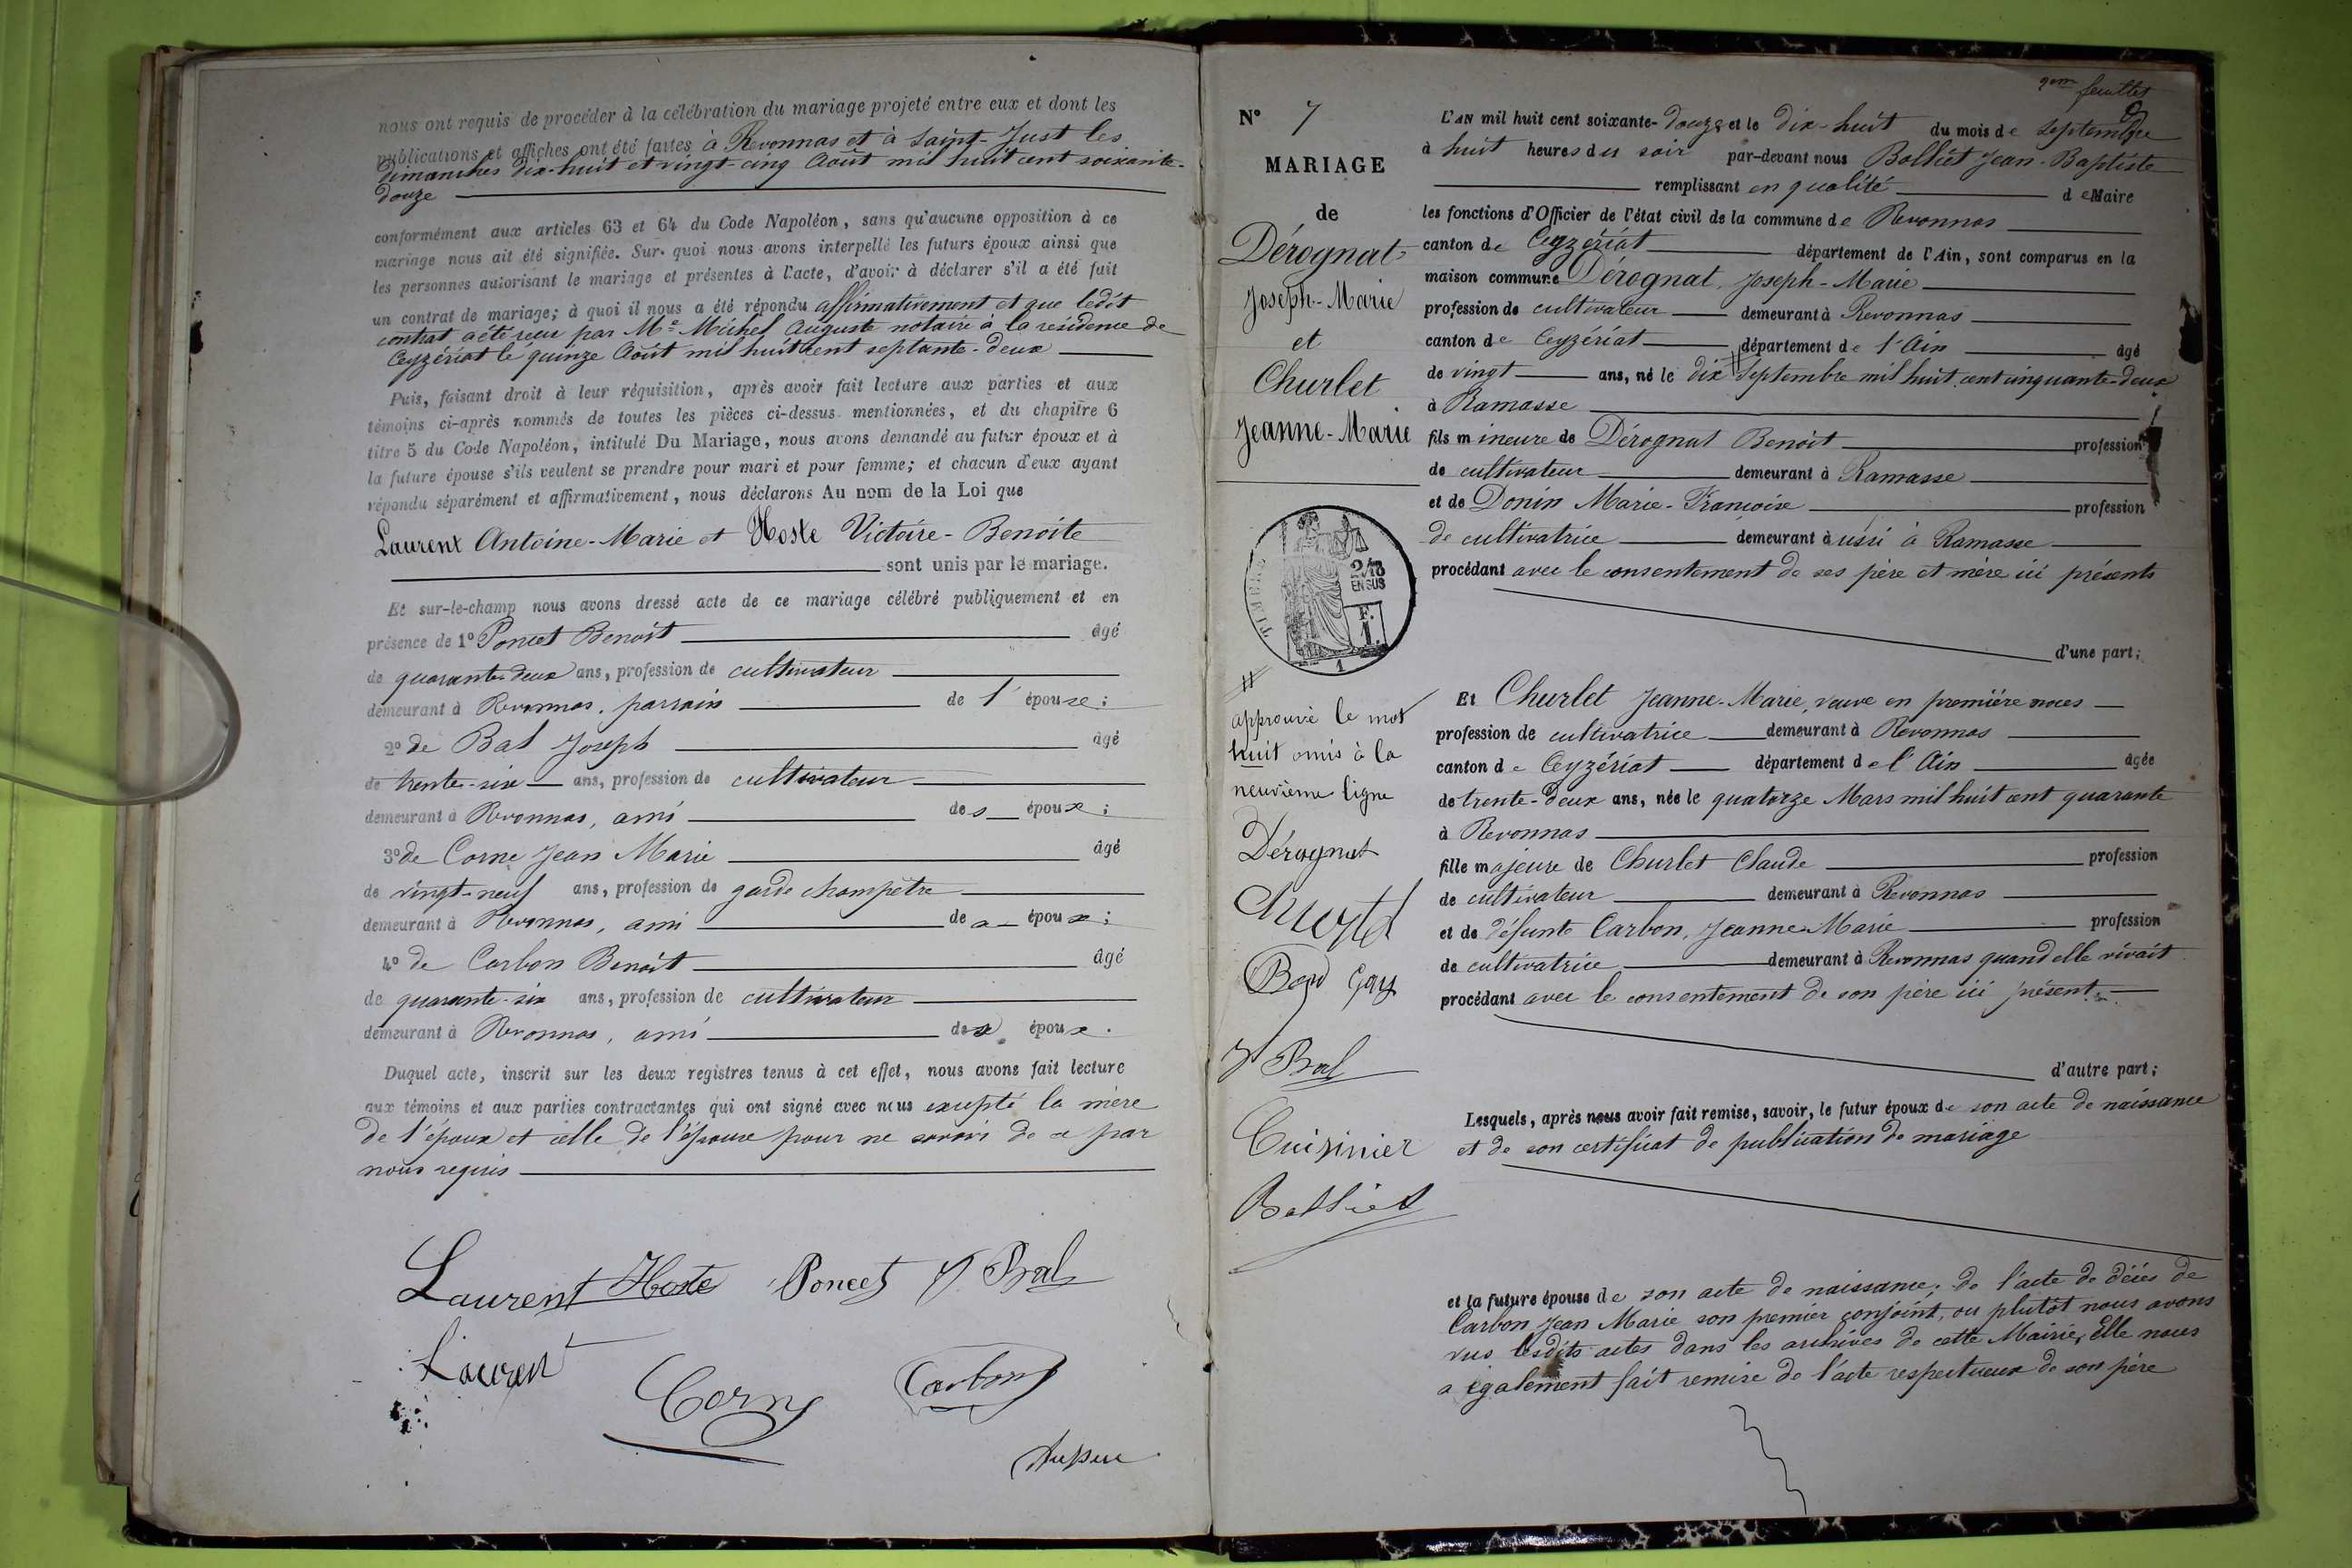 nous ont requis de procéder à la célébration du mariage projeté entre eux et dont les
publications et affiches ont été faites à Revonnas et à Saint-Just les
dimanches dix-huit et vingt-cinq Août mil huit cent soixante-
douze
conformément aux articles 63 et 64 du Code Napoléon, sans qu'aucune opposition à ce
mariage nous ait été signifiée. Sur quoi nous avons interpellé les futurs époux ainsi que
les personnes autorisant le mariage et présentes à l'acte, d'avoir à déclarer s'il a été fait
un contrat de mariage; à quoi il nous a été répondu affirmativement et que ledit
contrat a été reçu par Me Michel Auguste notaire à la résidence de
Ceyzériat le quinze Août mil huit cent septante-deux
Puis, faisant droit à leur réquisition, après avoir fait lecture aux parties et aux
témoins ci-après nommés de toutes les pièces ci-dessus mentionnées, et du chapitre 6
titre 5 du Code Napoléon, intitulé Du Mariage, nous avons demandé au futur époux et à
la future épouse s'ils veulent se prendre pour mari et pour femme; et chacun d'eux ayant
répondu séparément et affirmativement, nous déclarons Au nom de la Loi que
Laurent Antoine-Marie et Hoste Victoire-Benoite
sont unis par le mariage.
Et sur-le-champ nous avons dressé acte de ce mariage célébré publiquement et en
présence de 1º Poncet Benoit âgé
de quarante-deux ans, profession de cultivateur
demeurant à Revonnas, parrain de l'épouse;
2º de Bal Joseph âgé
de trente-six ans, profession de cultivateur
demeurant à Revonnas, ami des époux;
3º de Corne Jean Marie âgé
de vingt-neuf ans, profession de garde champêtre
demeurant à Revonnas, ami de époux;
4º de Carbon Benoît âgé
de quarante-six ans, profession de cultivateur
demeurant à Revonnas, ami de époux.
Duquel acte, inscrit sur les deux registres tenus à cet effet, nous avons fait lecture
aux témoins et aux parties contractantes qui ont signé avec nous excepté la mère
de l'époux et celle de l'épouse pour ne savoir de ce par
nous requis
Laurent Hoste Poncet J Bal
Laurent
Corne Carbon
9em feuillet
9
Nº 7
MARIAGE
de
Dérognat
Joseph-Marie
et
Churlet
Jeanne-Marie
TIMBRE
2/10
EN SUS
F.
1.
1
#
approuvé le mot
huit omis à la
neuvième ligne
Dérognat
Churlet
Gay
J Bal
Cuisinier
Bolliet
L'AN mil huit cent soixante-douze et le dix-huit du mois de Septembre
à huit heures du soir par-devant nous Bolliet Jean-Baptiste
remplissant en qualité de Maire
les fonctions d'Officier de l'état civil de la commune de Revonnas
canton de Ceyzériat département de l'Ain, sont comparus en la
maison commune Dérognat Joseph-Marie
profession de cultivateur demeurant à Revonnas
canton de Ceyzériat département de l'Ain âgé
de vingt ans, né le dix # Septembre mil huit cent cinquante-deux
à Ramasse
fils mineure de Dérognat Benoit profession
de cultivateur demeurant à Ramasse
et de Donin Marie-Françoise profession
de cultivatrice demeurant aussi à Ramasse
procédant avec le consentement de ses père et mère ici présents
d'une part;
Et Churlet Jeanne-Marie, veuve en première noces
profession de cultivatrice demeurant à Revonnas
canton de Ceyzériat département de l'Ain âgée
de trente-deux ans, née le quatorze Mars mil huit cent quarante
à Revonnas
fille majeure de Churlet Claude profession
de cultivateur demeurant à Revonnas
et de défunte Carbon, Jeanne-Marie profession
de cultivatrice demeurant à Revonnas quand elle vivait
procédant avec le consentement de son père ici présent
d'autre part;
Lesquels, après nous avoir fait remise, savoir, le futur époux de son acte de naissance
et de son certificat de publication de mariage
et la future épouse de son acte de naissance; de l'acte de décès de
Carbon Jean Marie son premier conjoint, ou plutôt nous avons
vus lesdits actes dans les archives de cette Mairie, Elle nous
a également fait remise de l'acte respectueux de son père